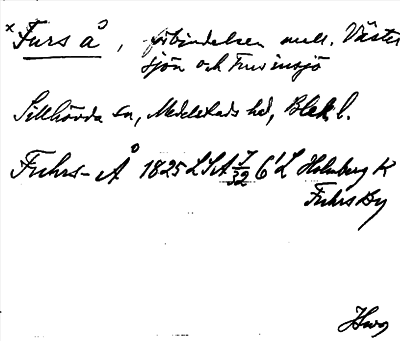 × Furs å, förbindelsen mell. Väster
sjön och Furensjö
Sillhövda sn, Medelstads hd, Blek. l.
Fuhrs-Å 1825 LSA 7/32 6'L Holmberg K
Fuhrs By